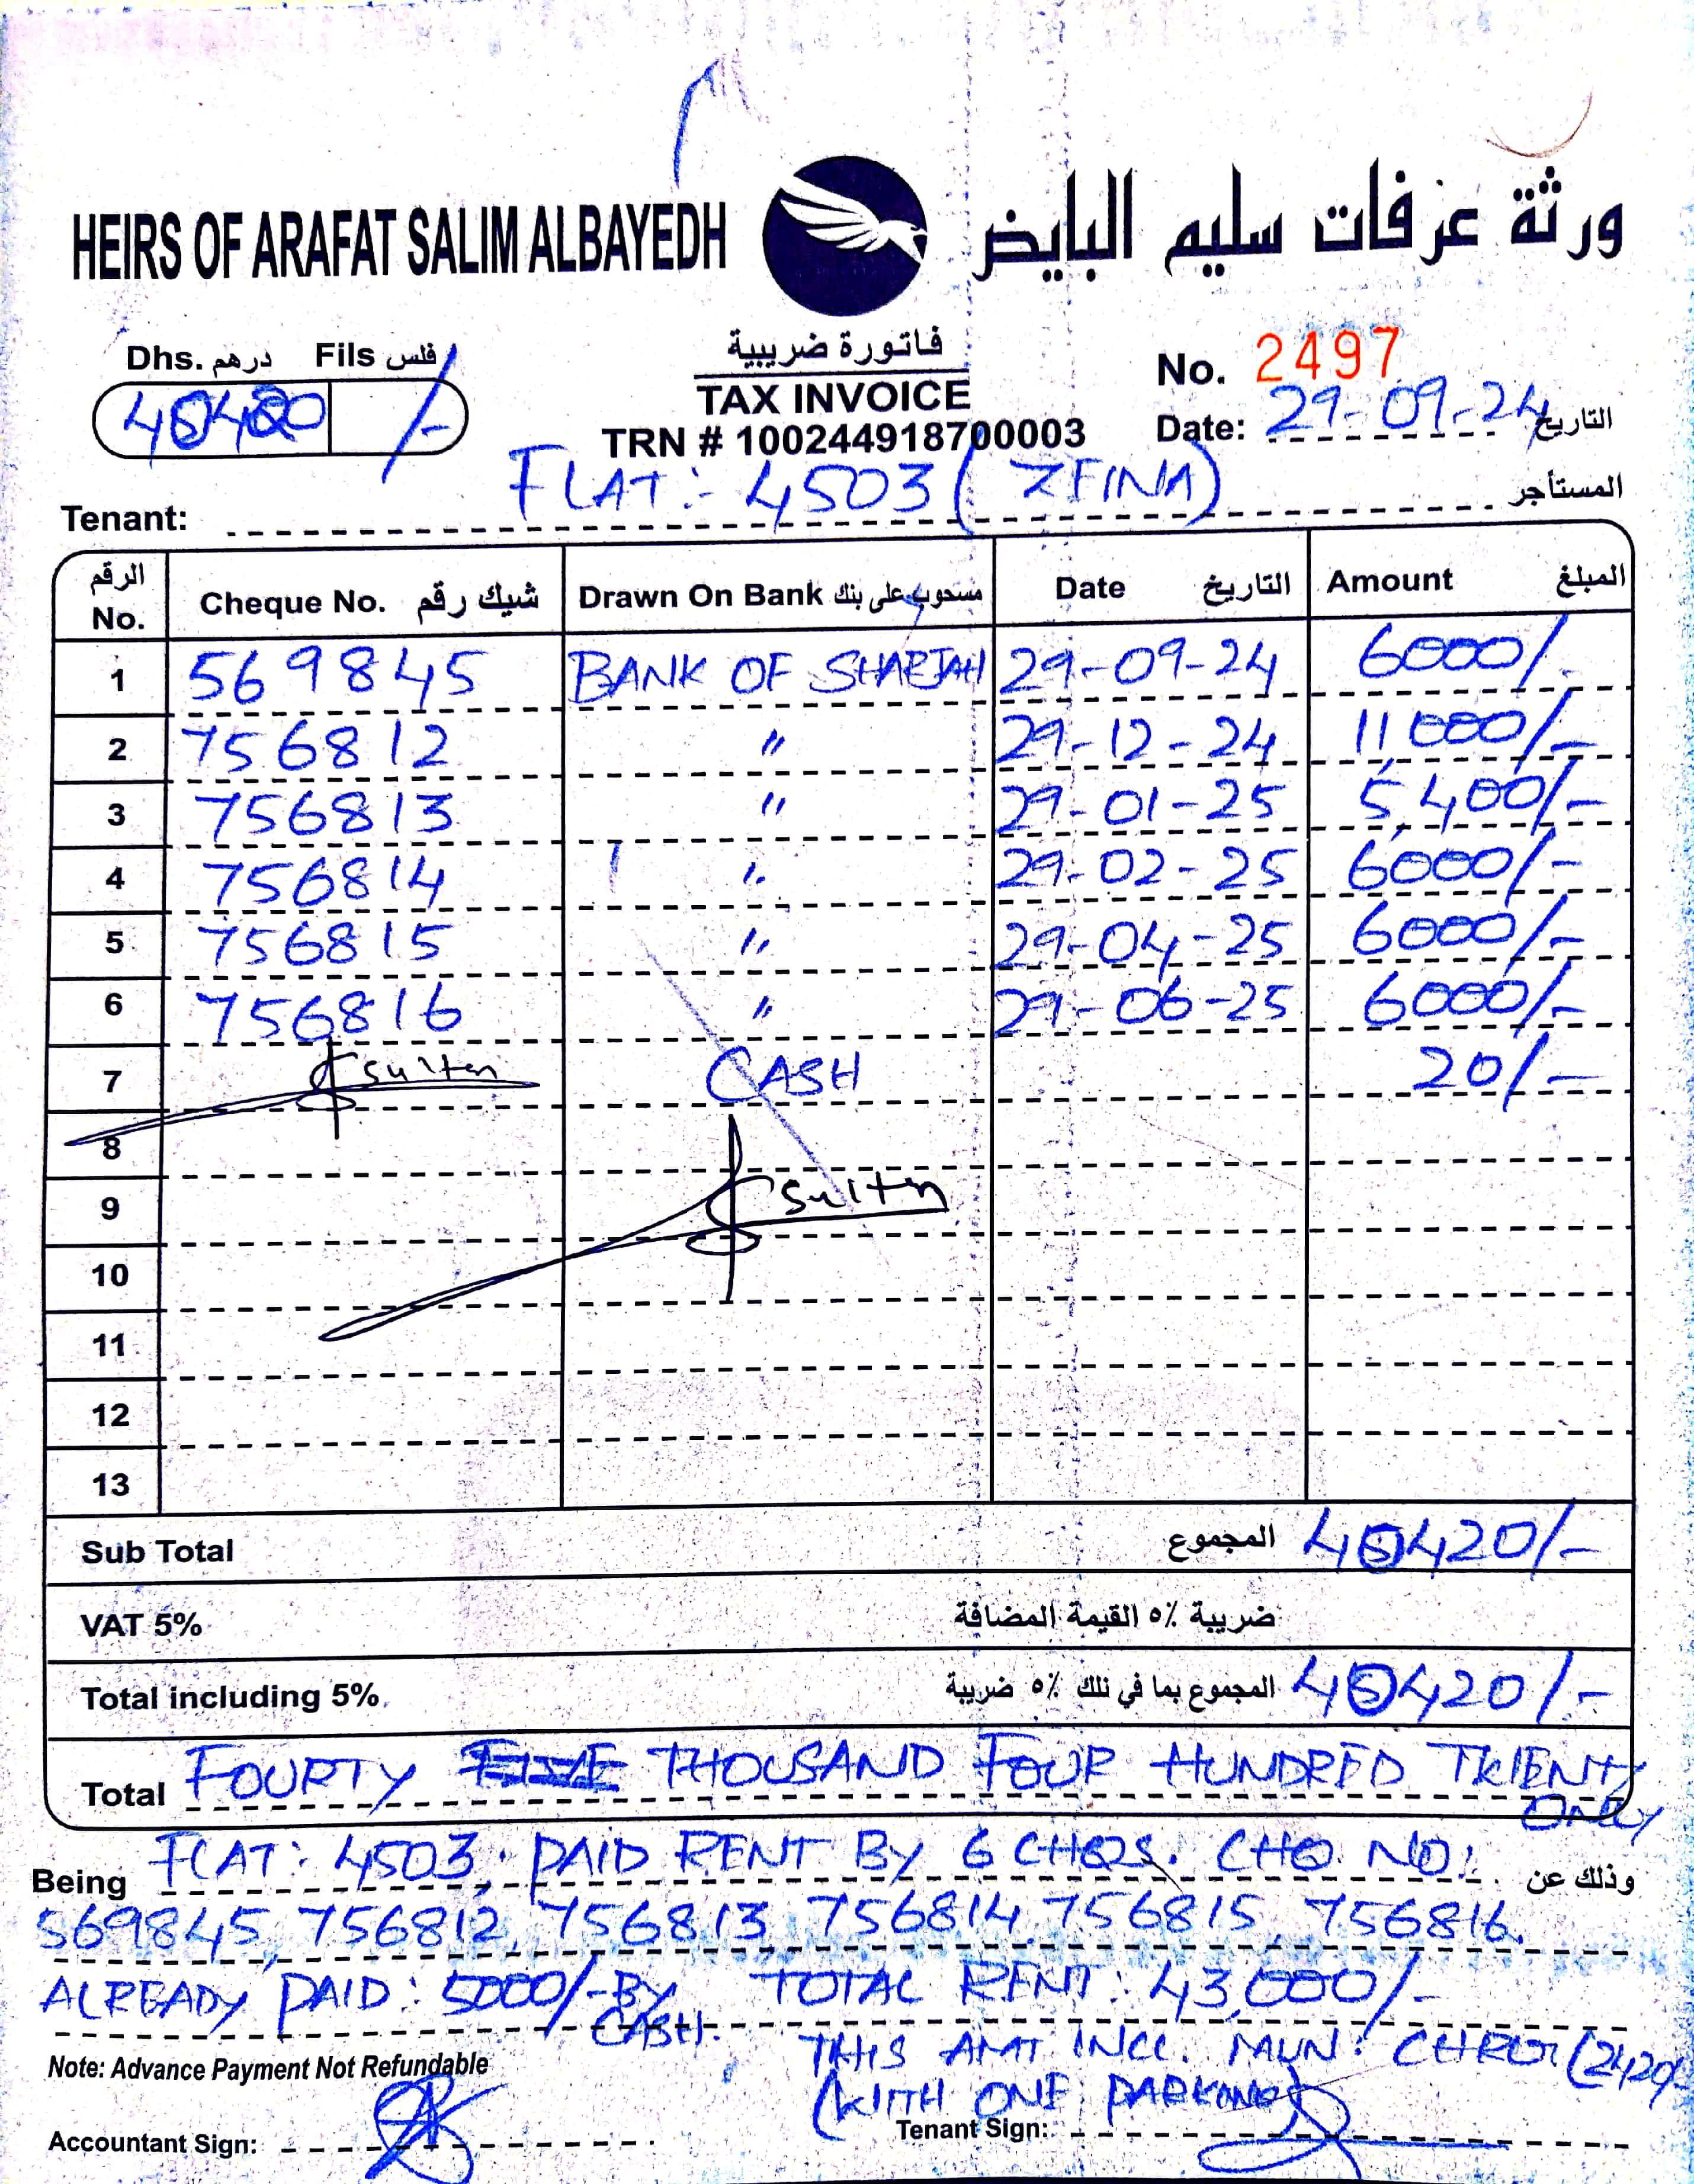 HEIRS OF ARAFAT SALIM ALBAYEDH
ورثة عرفات سليم البايض
Dhs. درهم Fils فلس
40420 /-
فاتورة ضريبية
TAX INVOICE
TRN # 100244918700003
No. 2497
Date: 29-09-24 التاريخ
Tenant: FLAT:- 4503 ( ZEINA) المستأجر
الرقم No. Cheque No. شيك رقم Drawn On Bank مسحوب على بنك Date التاريخ Amount المبلغ
1 569845 BANK OF SHARJAH 29-09-24 6000/-
2 756812 " 29-12-24 11,000/-
3 756813 " 29-01-25 5,400/-
4 756814 " 29-02-25 6000/-
5 756815 " 29-04-25 6000/-
6 756816 " 29-06-25 6000/-
7 Sultan CASH 20/-
8
9 Sultn
10
11
12
13
Sub Total المجموع 40420/-
VAT 5% ضريبة ٥٪ القيمة المضافة
Total including 5% المجموع بما في تلك ٥٪ ضريبة 40420/-
Total FOURTY THOUSAND FOUR HUNDRED TWENTY
ONLY
Being FLAT: 4503, PAID RENT BY 6 CHQS. CHQ NO: وذلك عن
569845, 756812, 756813, 756814, 756815, 756816.
ALREADY PAID: 5000/- BY CASH. TOTAL RENT: 43,000/-
THIS AMT INCL. MUN: CHRG (2420/-
(WITH ONE PARKING)
Note: Advance Payment Not Refundable
Accountant Sign: Tenant Sign: